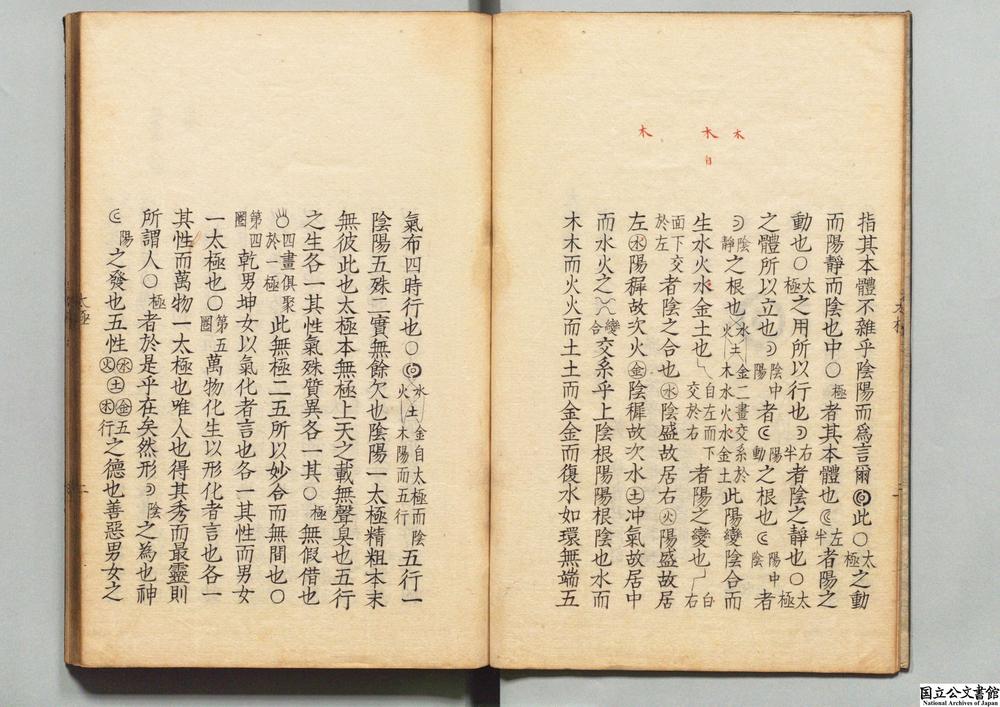 木 木 木
自
指其本體不雜乎陰陽而爲言爾此○太極之動
而陽靜而陰也中○極者其本體也左半者陽之
動也○太極之用所以行也右半者陰之靜也○太極
之體所以立也陰中陽者陽動之根也陽中陰者
陰靜之根也水火土金木二畫交系於水火水金土此陽變陰合而
生水火木金土也自左而下交於右者陽之變也自右
面下交於左者陰之合也水陰盛故居右火陽盛故居
左水陽穉故次火金陰穉故次水土冲氣故居中
而水火之變合交系乎上陰根陽陽根陰也水而
木木而火火而土土而金金而復水如環無端五
氣布四時行也○水火土金木自太極而陰陽而五行五行一
陰陽五殊二實無餘欠也陰陽一太極精粗本末
無彼此也太極本無極上天之載無聲臭也五行
之生各一其性氣殊質異各一其○極無假借也
四畫俱聚於一極此無極二五所以妙合而無間也○
第四圈乾男坤女以氣化者言也各一其性而男女
一太極也○第五圈萬物化生以形化者言也各一
其性而萬物一太極也唯人也得其秀而最靈則
所謂人○極者於是乎在矣然形陰之為也神
陽之發也五性水火土金木五行之德也善惡男女之
太極
太極
国立公文書館
National Archives of Japan